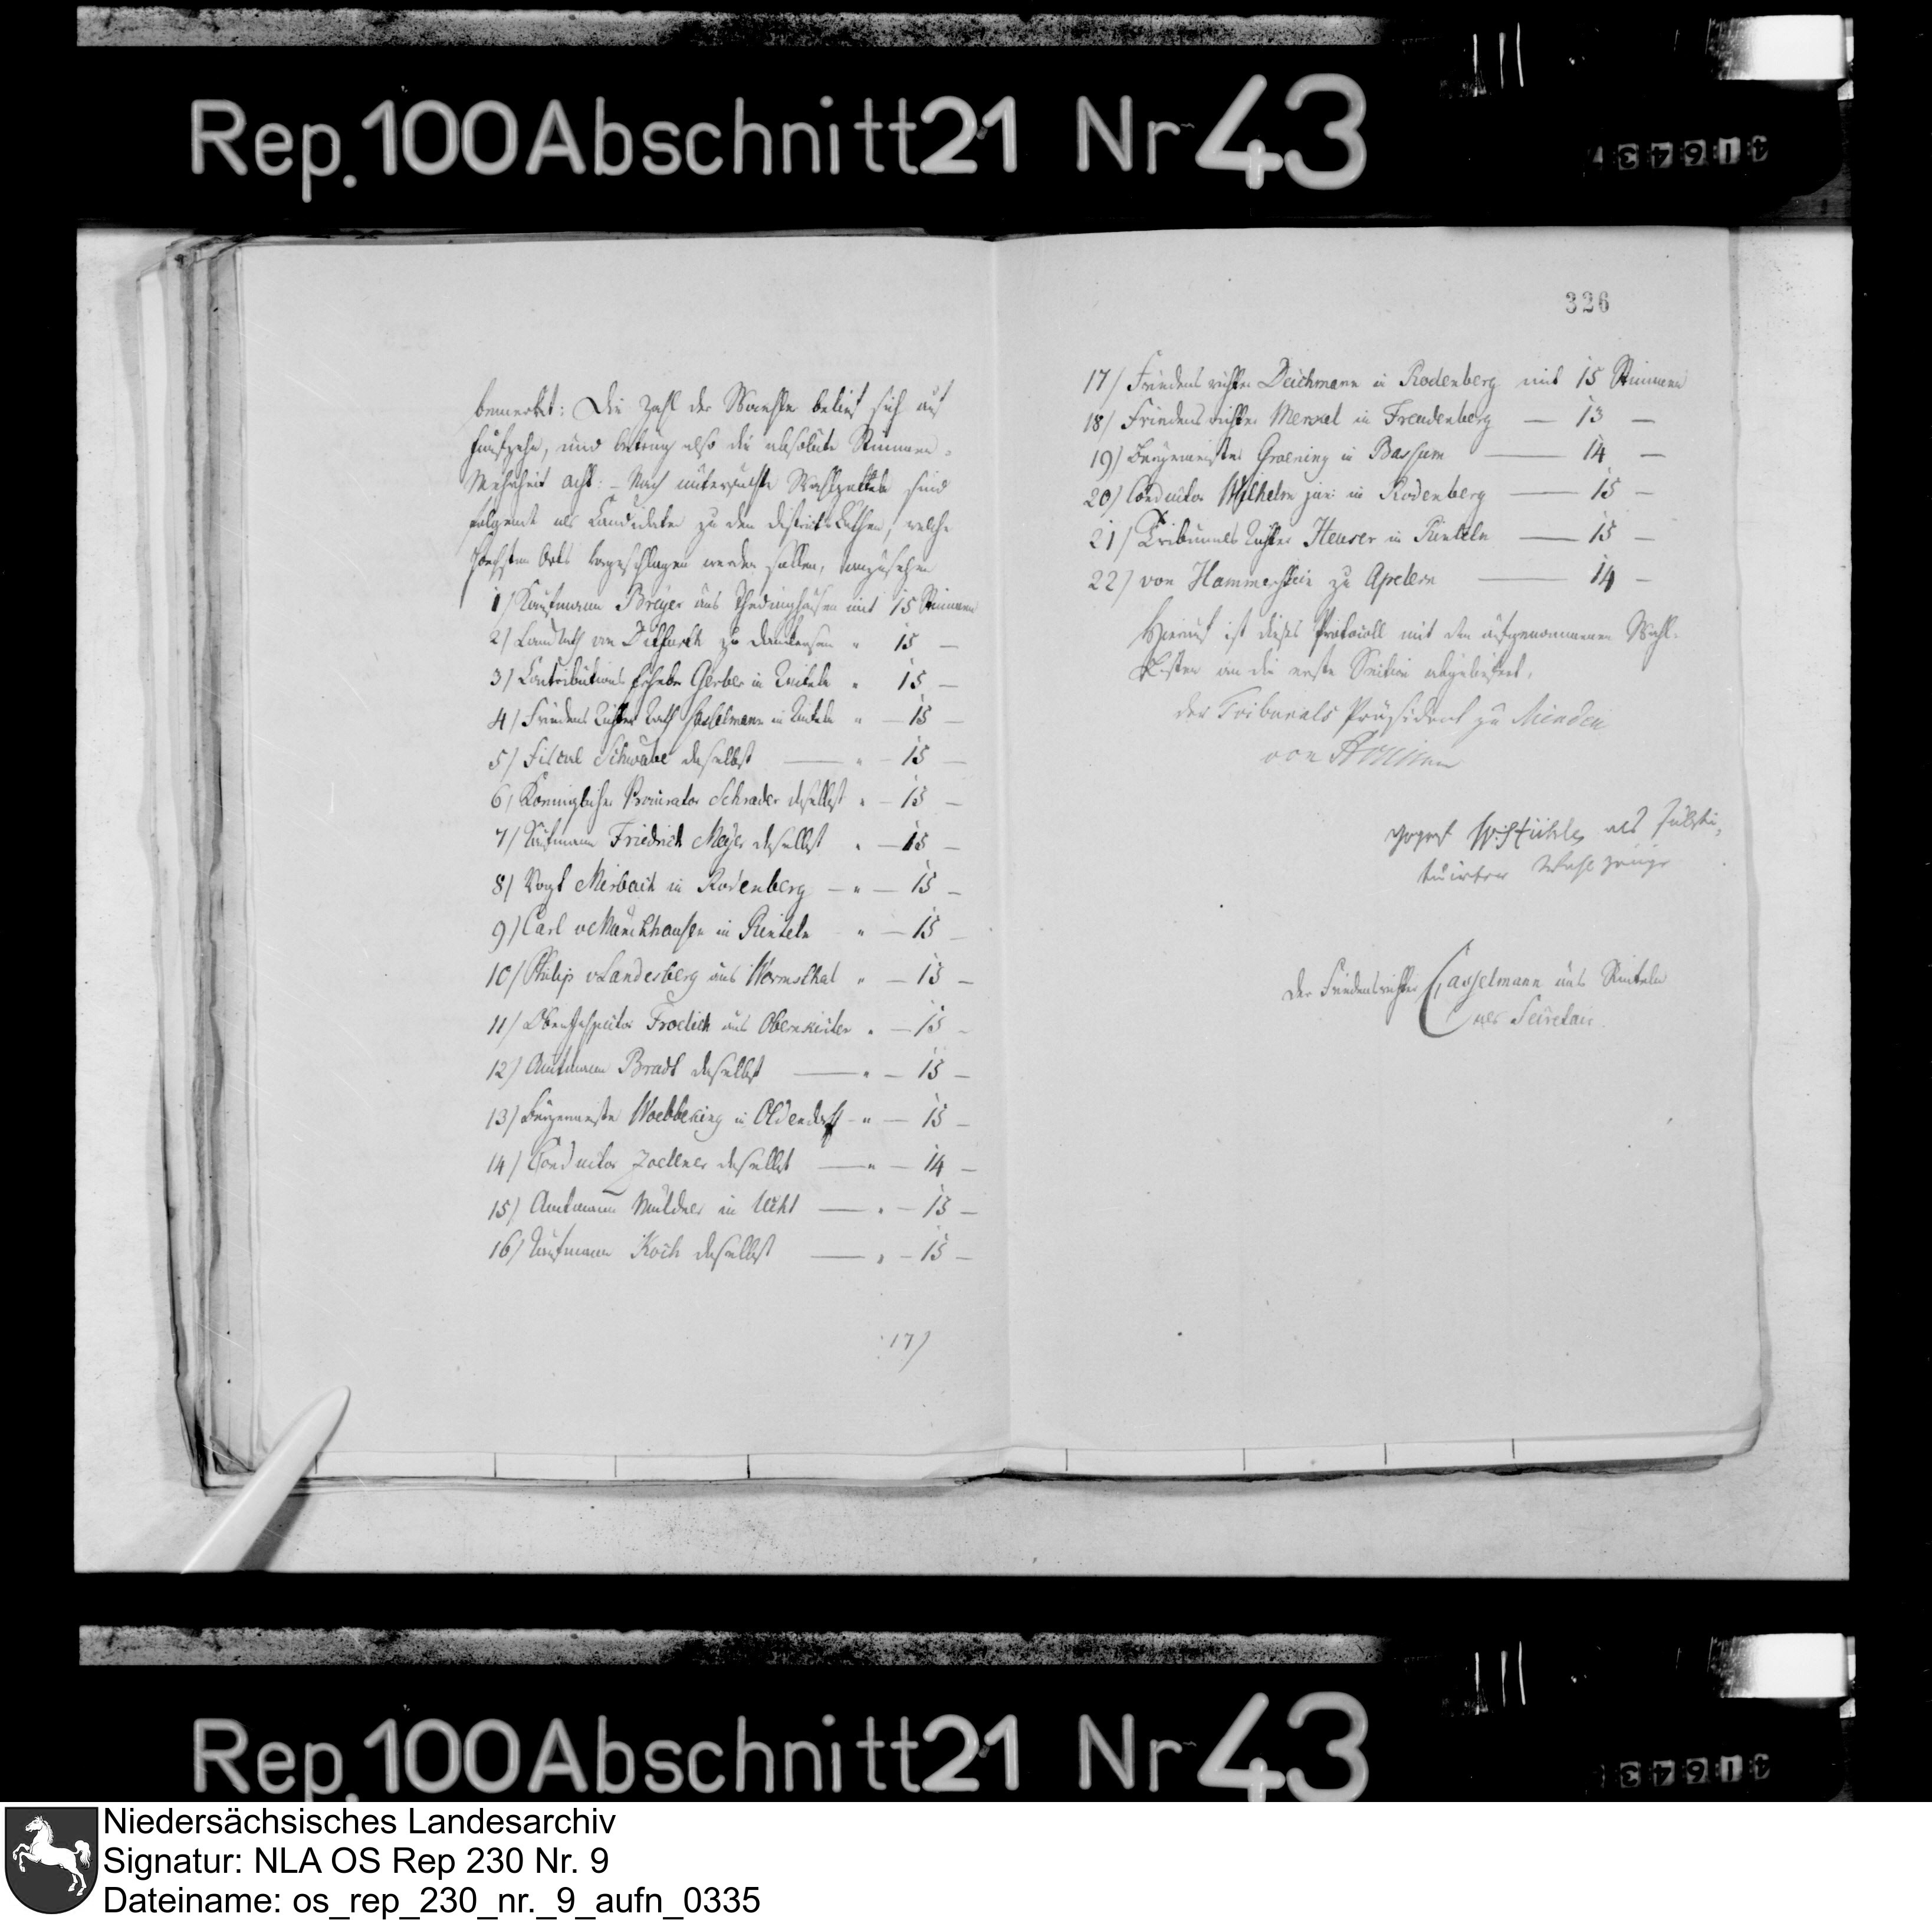 Rep. 100 Abschnitt 21 Nr 43
31643
bemerkt: Die Zahl der Waehler belief sich auf
funfzehn, und betrug also die absolute Stimmen-
Mehrheit acht: – Nach untersuchte Wahlzetteln sind
folgende als Candidaten zu den Districts Räthen, welche
hoechsten Orts vorgeschlagen werden sollen, anzusehen
1/ Kaufmann Breyer aus Thedinghausen mit 15 Stimmen
2/ Landrath von Ditfurth zu Dankersen " 15 —
3/ Contributions Erheber Gerber in Rinteln " 15 —
4/ Friedens Richter Rath Casselmann in Rinteln " — 15 —
5/ Fiscal Schwabe daselbst — " — 15 —
6/ Koeniglicher Procurator Schrader daselbst " — 15 —
7/ Kaufmann Friedrich Meyer daselbst " — 15 —
8/ Vogt Mirbach in Rodenberg — " — 15 —
9/ Carl v Münchhausen in Rinteln " — 15 —
10/ Philip v Landesberg aus Wormsthal " — 13 —
11/ Froelich aus Obernkirchen " — 15 —
12/ Amtmann Bradt daselbst — " — 15 —
13/ Bürgermeister Woebbeking in Oldendorf — " — 15 —
14/ Conductor Zoellner daselbst — " — 14 —
15/ Amtmann Müldner in Ucht — " — 13 —
16/ Kaufmann Koch daselbst — " — 15 —
17/
326
17/ Friedens richter Deichmann in Rodenberg mit 15 Stimmen
18/ Friedens richter Menzel in Freudenberg — 13 —
19/ Bürgermeister Groening in Bassum — 14 —
20/ Conductor Wilhelm jun: in Rodenberg — 15 —
21/ Tribunals Richter Heuser in Rinteln — 15 —
22/ von Hammerstein zu Apelern — 14 —
Hierauf ist dieses Protocoll mit den aufgenommenen Wahl-
Listen an die erste Section abgeliefert.
der Tribunals Präsident zu Minden
von
als Substi-
tuirter Wahlzeuge
Der Friedensrichter Casselmann aus Rinteln
als Secretair.
Rep. 100 Abschnitt 21 Nr 43
31643
Niedersächsisches Landesarchiv
Signatur: NLA OS Rep 230 Nr. 9
Dateiname: os_rep_230_nr._9_aufn_0335